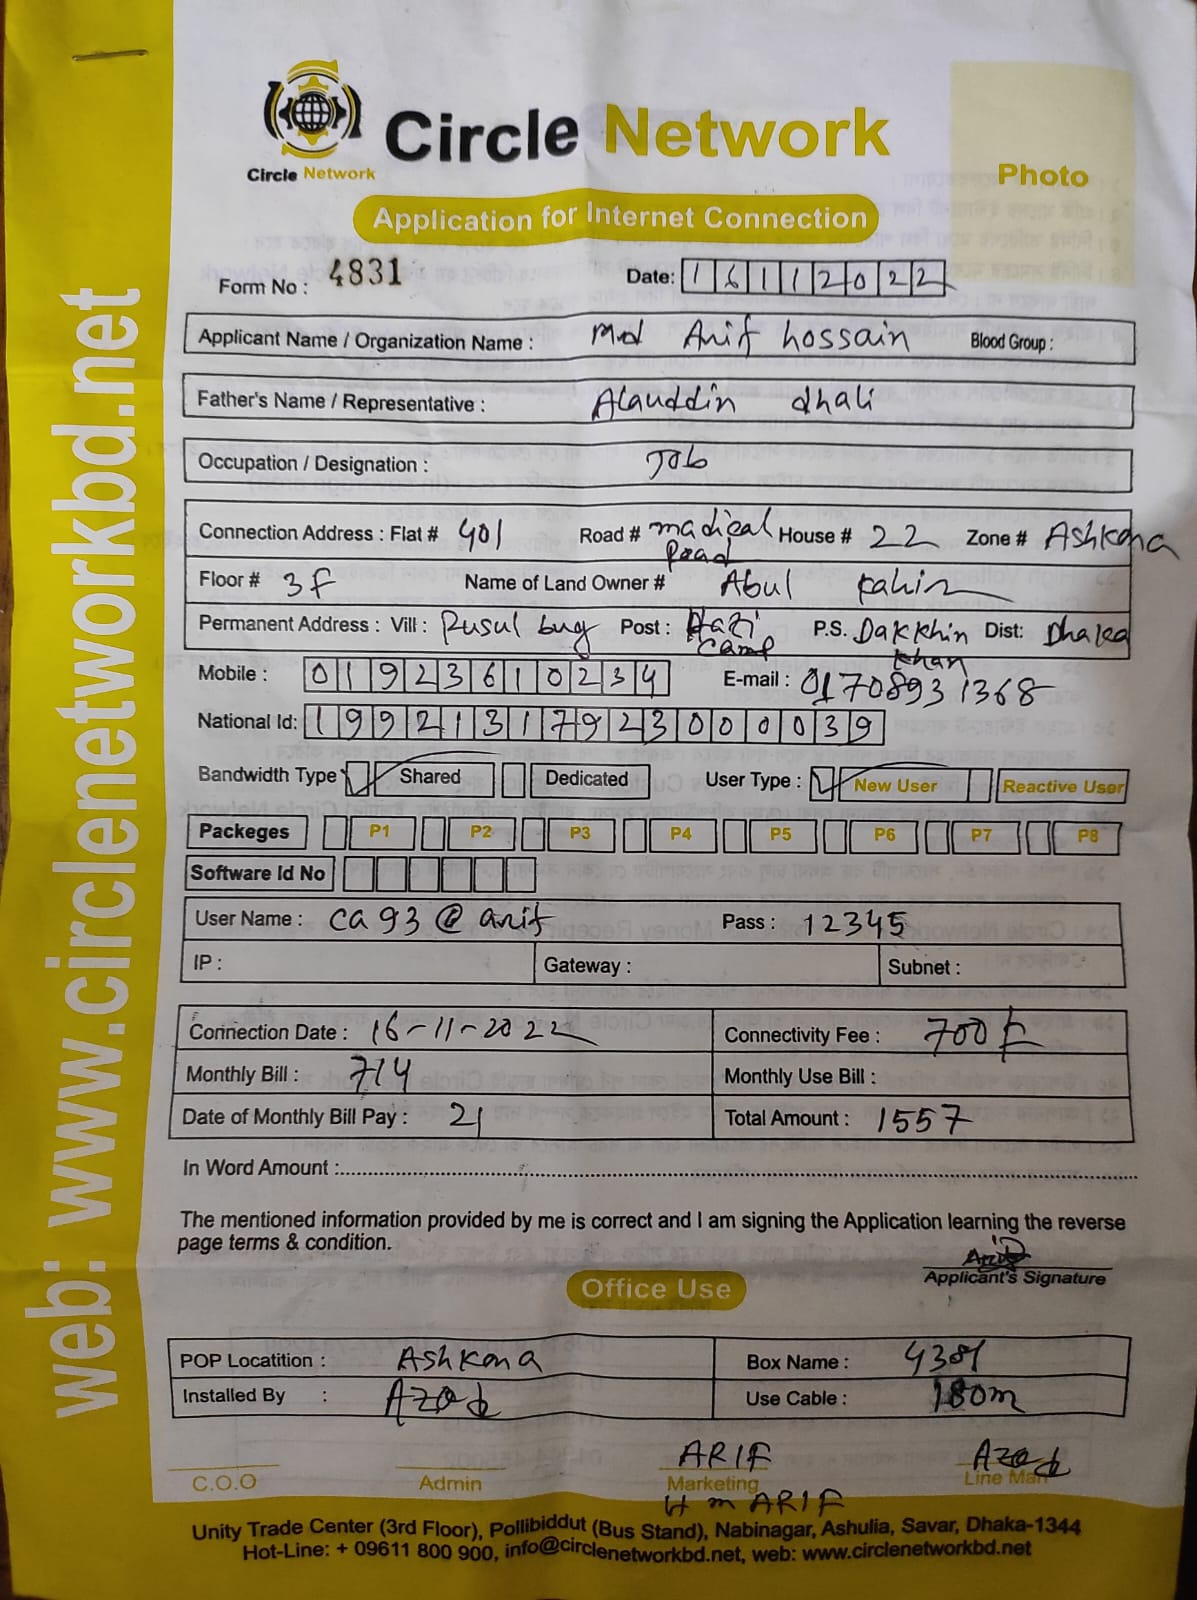 Circle Network
Circle Network
Photo
Application for Internet Connection
Form No : 4831 Date: 16112022
Applicant Name / Organization Name : Md Arif Hossain Blood Group :
Father's Name / Representative : Alauddin dhali
Occupation / Designation : Job
Connection Address : Flat # 401 Road # madical Road House # 22 Zone # Ashkona
Floor # 3F Name of Land Owner # Abul
Permanent Address : Vill : Rusul bug Post : Hazi Camp P.S. Dakkhin Khan Dist: Dhaka
Mobile : 01923610234 E-mail : 01708931368
National Id: 19921317923000039
Bandwidth Type Shared Dedicated User Type : New User Reactive User
Packeges P1 P2 P3 P4 P5 P6 P7 P8
Software Id No
User Name : ca93@arif Pass : 12345
IP : Gateway : Subnet :
Connection Date : 16-11-2022 Connectivity Fee : 700
Monthly Bill : 714 Monthly Use Bill :
Date of Monthly Bill Pay : 21 Total Amount : 1557
In Word Amount :
The mentioned information provided by me is correct and I am signing the Application learning the reverse
page terms & condition.
Applicant's Signature
Office Use
POP Locatition : Ashkona Box Name :
Installed By : Azad Use Cable : 180m
ARIF Azad
C.O.O Admin Marketing Line Man
H m ARIF
Unity Trade Center (3rd Floor), Pollibiddut (Bus Stand), Nabinagar, Ashulia, Savar, Dhaka-1344
Hot-Line: + 09611 800 900, info@circlenetworkbd.net, web: www.circlenetworkbd.net
web: www.circlenetworkbd.net